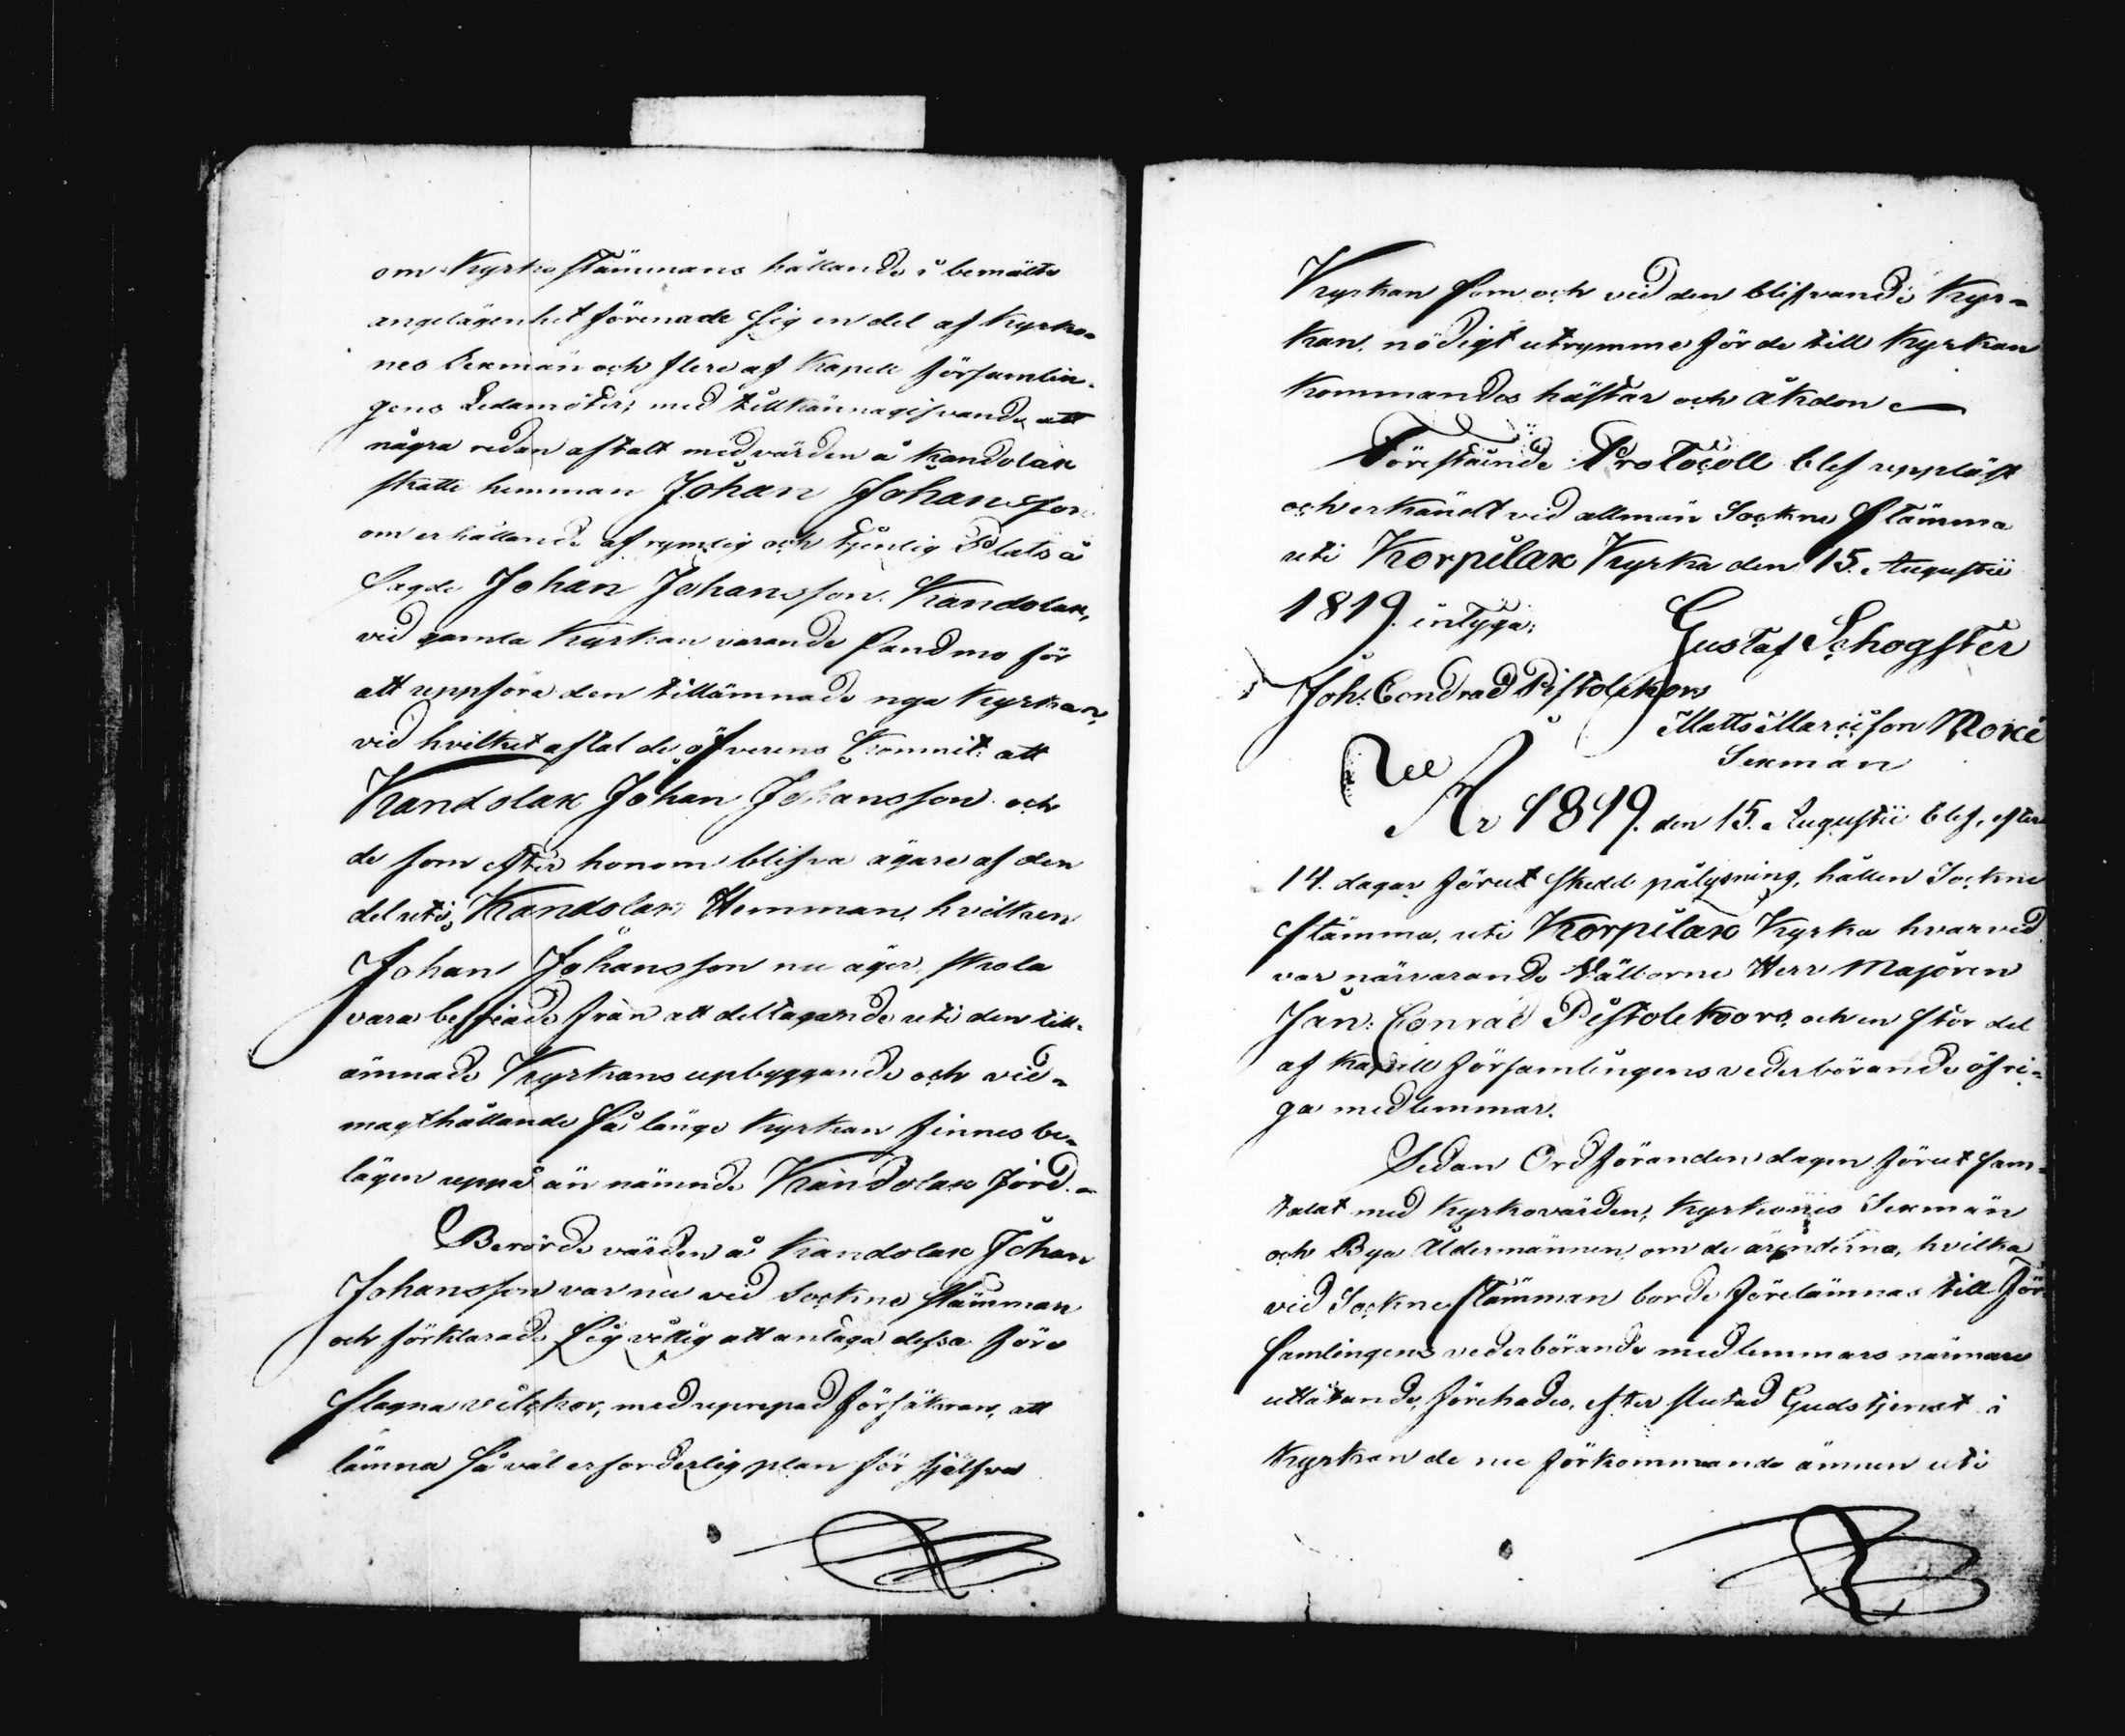 om Kyrko stämmans hållande i bemälte
angelägenhet förenade sig en del af Kyrko-
nes Sexmän och flere af Kapell församlin-
gens Ledamöter, med tillkännagifvande att
några redan aftalt med värden å Kandolax
skatte hemman Johan Johansson
om erhållande af rymlig och tjenlig Plats å
sagde Johan Johansson Kandolax,
vid gamla Kyrkan varande sandmo för
att uppföra den tillämnade nya Kyrkan,
vid hvilket aftal de öfverens kommit: att
Kandolax Johan Johansson och
de som efter honom blifva ägare af den
del uti Kandolax Hemman, hvilken
Johan Johansson nu äger, skola
vara befriade från att deltagande uti den till-
ämnade Kyrkans upbyggande och vid-
magthållande så länge Kyrkan finnes be-
lägen uppå än nämnde Kandolax jord.-
Berörde värden å Kandolax Johan
Johansson var nu vid Sockne stämman
och förklarade sig villig att antaga dessa före
slagna vilckor, med uprepad försäkran, att
lämna så väl erforderlig plan för sjelfva
Kyrkan som och vid den blifvande Kyr-
kan nödigt utrymme för de till Kyrkan
kommandes hästar och åkdon
Förestående Protocoll blef uppläst
och erkändt vid allmän Sockne stämma
uti Korpilax Kyrka den 15. Augustii
1819. intyga;
Gustaf Schogster
Joh: Condrad Pistolekors
Matts Mårtsson Moxi
Sexman
År 1819. den 15. Augustii blef, efter
14. dagar förut skedd pålysning, hållen Sockne
stämma, uti Korpilax Kyrka hvarvid
var närvarande Välborne Herr Majoren
Jan: Conrad Pistolekors, och en stor del
af Kapell församlingens vederbörande öfri-
ga medlemmar.
Sedan Ordföranden dagen förut sam-
talat med Kyrkovärden, Kyrkones Sexmän
och Bya Åldermännen, om de ärenderna, hvilka
vid Sockne stämman borde förelämnas till För
samlingens vederbörande medlemmars närmare
utlåtande, förehades, efter slutad Gudstjenst i
Kyrkan de nu förkommande ämnen uti